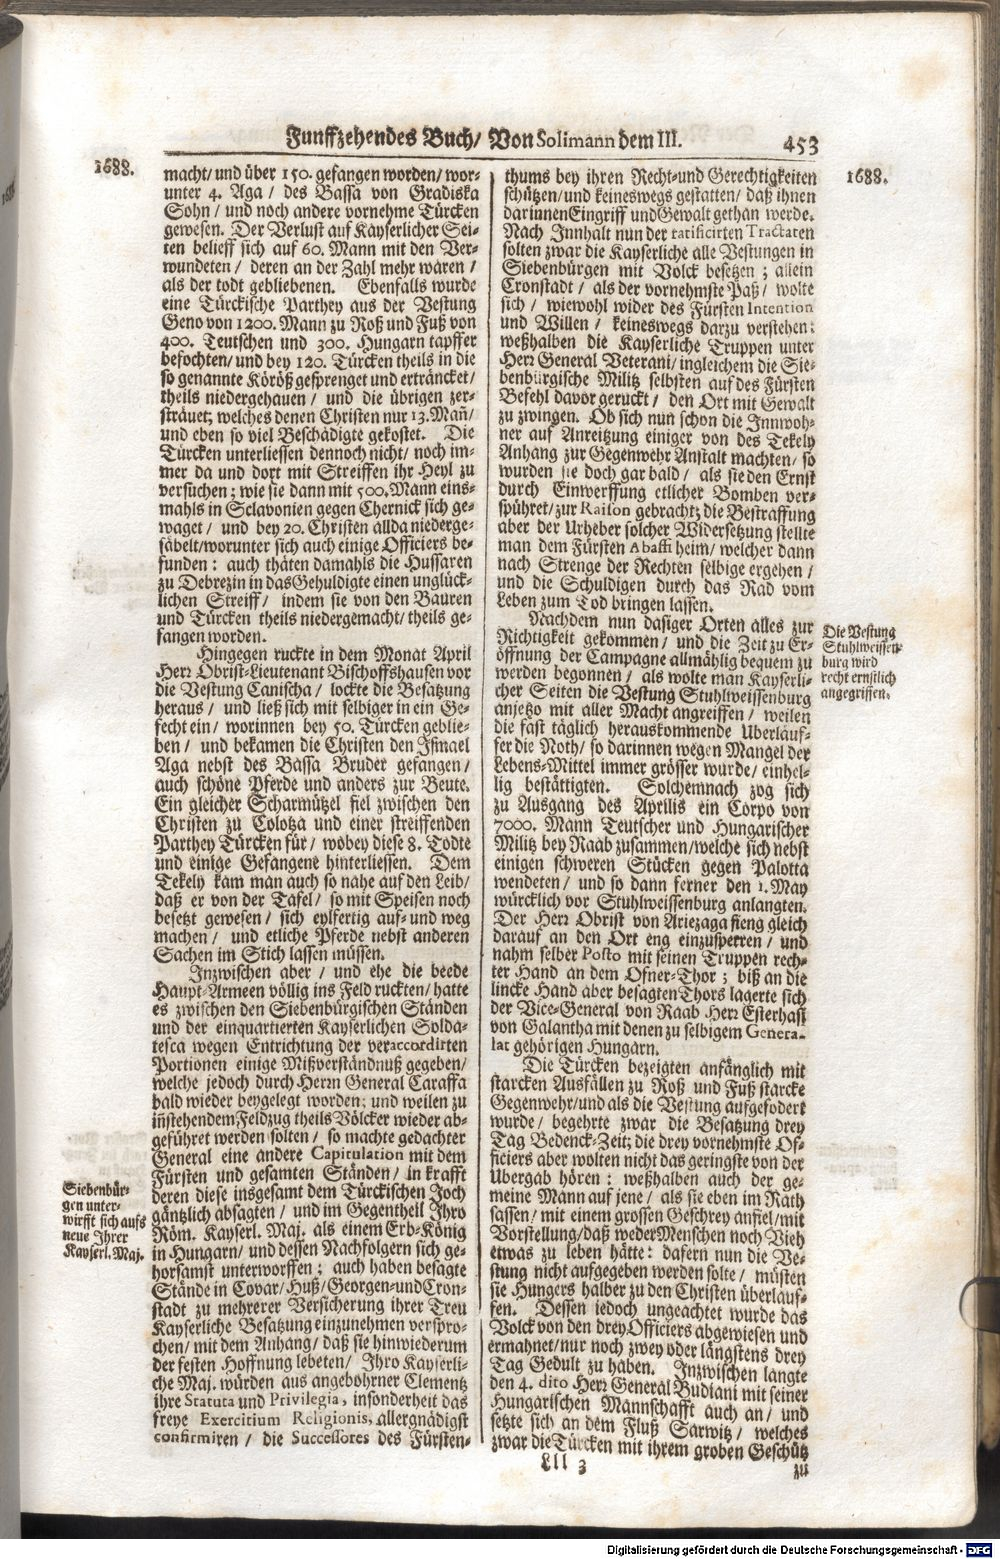 Funffzehendes Buch/ Von Solimann dem III. 453
1688.
macht/ und über 150. gefangen worden/ wor-
unter 4. Aga/ des Bassa von Gradiska
Sohn/ und noch andere vornehme Türcken
gewesen. Der Verlust auf Kayserlicher Sei-
ten belieff sich auf 60. Mann mit den Ver-
wundeten/ deren an der Zahl mehr waren/
als der todt gebliebenen. Ebenfalls wurde
eine Türckische Parthey aus der Vestung
Geno von 1200. Mann zu Roß und Fuß von
400. Teutschen und 300. Hungarn tapffer
befochten/ und bey 120. Türcken theils in die
so genannte Köröß gesprenget und erträncket/
theils niedergehauen/ und die übrigen zer-
sträuet; welches denen Christen nur 13. Mañ/
und eben so viel Beschädigte gekostet. Die
Türcken unterliessen dennoch nicht/ noch im-
mer da und dort mit Streiffen ihr Heyl zu
versuchen; wie sie dann mit 500. Mann eins-
mahls in Sclavonien gegen Chernick sich ge-
waget/ und bey 20. Christen allda niederge-
säbelt/ worunter sich auch einige Officiers be-
funden: auch thäten damahls die Hussaren
zu Debrezin in das Gehuldigte einen unglück-
lichen Streiff/ indem sie von den Bauren
und Türcken theils niedergemacht/ theils ge-
fangen worden.
Hingegen ruckte in dem Monat April
Herr Obrist-Lieutenant Bischoffshausen vor
die Vestung Canischa/ lockte die Besatzung
heraus/ und ließ sich mit selbiger in ein Ge-
fecht ein/ worinnen bey 50. Türcken geblie-
ben/ und bekamen die Christen den Ismael
Aga nebst des Bassa Bruder gefangen/
auch schöne Pferde und anders zur Beute.
Ein gleicher Scharmützel fiel zwischen den
Christen zu Colotza und einer streiffenden
Parthey Türcken für/ wobey diese 8. Todte
und einige Gefangene hinterliessen. Dem
Tekely kam man auch so nahe auf den Leib/
daß er von der Tafel/ so mit Speisen noch
besetzt gewesen/ sich eylfertig auf- und weg
machen/ und etliche Pferde nebst anderen
Sachen im Stich lassen müssen.
Inzwischen aber/ und ehe die beede
Haupt-Armeen völlig ins Feld ruckten/ hatte
es zwischen den Siebenbürgischen Ständen
und der einquartierten Kayserlichen Solda-
tesca wegen Entrichtung der veraccordirten
Portionen einige Mißverständnuß gegeben/
welche jedoch durch Herrn General Caraffa
bald wieder beygelegt worden: und weilen zu
iñstehendem Feldzug theils Völcker wieder ab-
geführet werden solten/ so machte gedachter
General eine andere Capitulation mit dem
Fürsten und gesamten Ständen/ in krafft
deren diese insgesamt dem Türckischen Joch
gäntzlich absagten/ und im Gegentheil Ihro
Röm. Kayserl. Maj. als einem Erb-König
in Hungarn/ und dessen Nachfolgern sich ge-
horsamst unterworffen; auch haben besagte
Stände in Covar/ Huß/ Georgen- und Cron-
stadt zu mehrerer Versicherung ihrer Treu
Kayserliche Besatzung einzunehmen verspro-
chen/ mit dem Anhang/ daß sie hinwiederum
der festen Hoffnung lebeten/ Ihro Kayserli-
che Maj. würden aus angebohrner Clementz
ihre Statuta und Privilegia, insonderheit das
freye Exercitium Religionis, allergnädigst
confirmiren/ die Successores des Fürsten-
Siebenbür-
gen unter-
wirfft sich aufs
neue Ihrer
Kayserl. Maj.
1688.
thums bey ihren Recht- und Gerechtigkeiten
schützen/ und keineswegs gestatten/ daß ihnen
darinnen Eingriff und Gewalt gethan werde.
Nach Innhalt nun der ratificirten Tractaten
solten zwar die Kayserliche alle Vestungen in
Siebenbürgen mit Volck besetzen; allein
Cronstadt/ als der vornehmste Paß/ wolte
sich/ wiewohl wider des Fürsten Intention
und Willen/ keineswegs darzu verstehen:
weßhalben die Kayserliche Truppen unter
Herr General Veterani/ ingleichem die Sie-
benbürgische Militz selbsten auf des Fürsten
Befehl davor geruckt/ den Ort mit Gewalt
zu zwingen. Ob sich nun schon die Innwoh-
ner auf Anreitzung einiger von des Tekely
Anhang zur Gegenwehr Anstalt machten/ so
wurden sie doch gar bald/ als sie den Ernst
durch Einwerffung etlicher Bomben ver-
spühret/ zur Raison gebracht; die Bestraffung
aber der Urheber solcher Widersetzung stellte
man dem Fürsten Abaffi heim/ welcher dann
nach Strenge der Rechten selbige ergehen/
und die Schuldigen durch das Rad vom
Leben zum Tod bringen lassen.
Nachdem nun dasiger Orten alles zur
Richtigkeit gekommen/ und die Zeit zu Er-
öffnung der Campagne allmählig bequem zu
werden begonnen/ als wolte man Kayserli-
cher Seiten die Vestung Stuhlweissenburg
anjetzo mit aller Macht angreiffen/ weilen
die fast täglich herauskommende Uberläuf-
fer die Noth/ so darinnen wegen Mangel der
Lebens-Mittel immer grösser wurde/ einhel-
lig bestättigten. Solchemnach zog sich
zu Ausgang des Aprilis ein Corpo von
7000. Mann Teutscher und Hungarischer
Militz bey Raab zusammen/ welche sich nebst
einigen schweren Stücken gegen Palotta
wendeten/ und so dann ferner den 1. May
würcklich vor Stuhlweissenburg anlangten.
Der Herr Obrist von Ariezaga fieng gleich
darauf an den Ort eng einzusperren/ und
nahm selber Posto mit seinen Truppen rech-
ter Hand an dem Ofner-Thor; biß an die
lincke Hand aber besagten Thors lagerte sich
der Vice-General von Raab Herr Esterhasi
von Galantha mit denen zu selbigem Genera-
lat gehörigen Hungarn.
Die Türcken bezeigten anfänglich mit
starcken Ausfällen zu Roß und Fuß starcke
Gegenwehr/ und als die Vestung aufgefodert
wurde/ begehrte zwar die Besatzung drey
Tag Bedenck-Zeit; die drey vornehmste Of-
ficiers aber wolten nicht das geringste von der
Ubergab hören: weßhalben auch der ge-
meine Mann auf jene/ als sie eben im Rath
sassen/ mit einem grossen Geschrey anfiel/ mit
Vorstellung/ daß weder Menschen noch Vieh
etwas zu leben hätte: dafern nun die Ve-
stung nicht aufgegeben werden solte/ müsten
sie Hungers halber zu den Christen überlauf-
fen. Dessen jedoch ungeachtet wurde das
Volck von den drey Officiers abgewiesen und
ermahnet/ nur noch zwey oder längstens drey
Tag Gedult zu haben. Inzwischen langte
den 4. dito Herr General Budiani mit seiner
Hungarischen Mannschafft auch an/ und
setzte sich an dem Fluß Sarwitz/ welches
zwar die Türcken mit ihrem groben Geschütz
Die Vestung
Stuhlweissen-
burg wird
recht ernstlich
angegriffen.
Lll 3
zu
Digitalisierung gefördert durch die Deutsche Forschungsgemeinschaft - DFG